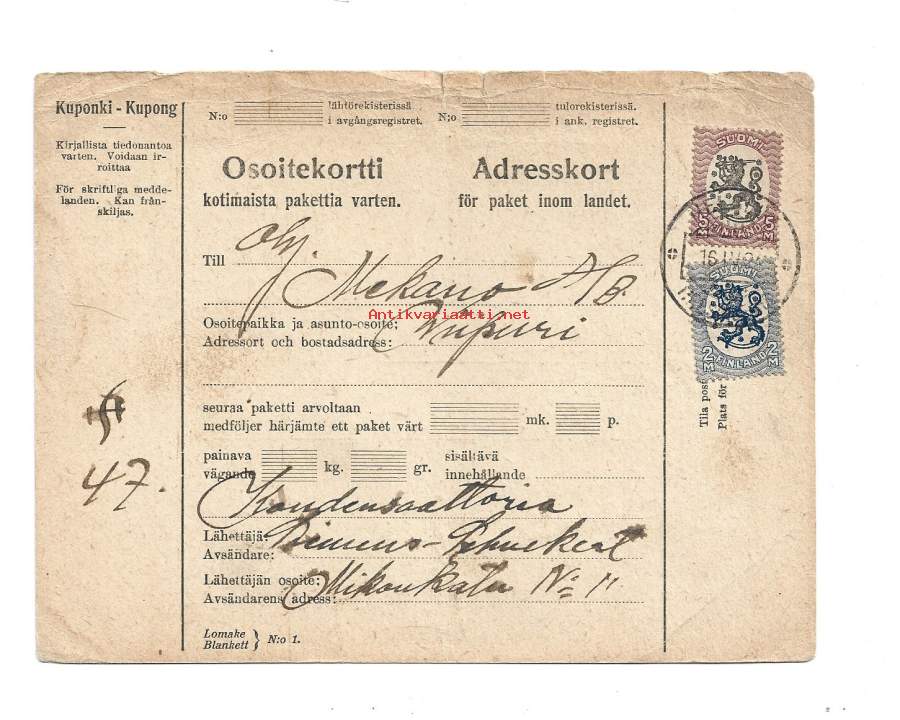 Kuponki - Kupong
Kirjallista tiedonantoa
varten. Voidaan ir-
roittaa
För skriftliga medde-
landen. Kan från-
skiljas.
47.
N:o lähtörekisterissä
i avgångsregistret.
N:o tulorekisterissä.
i ank. registret.
Osoitekortti
kotimaista pakettia varten.
Adresskort
för paket inom landet.
Till Oly.
Mekano A/B.
Antikvariaatti.net
Osoitepaikka ja asunto-osoite:
Adressort och bostadsadress: Wiipuri
seuraa paketti arvoltaan
medföljer härjämte ett paket värt mk. p.
painava
vägande kg. gr. sisältävä
innehållande
Kondensaattoria
Lähettäjä:
Avsändare: Siemens-Schuckert
Lähettäjän osoite:
Avsändarens adress: Mikonkatu No 11
Lomake
Blankett } N:o 1.
SUOMI
5 M FINLAND 5 M
16.IV.2
SUOMI
2 M FINLAND 2 M
Tila post
Plats för